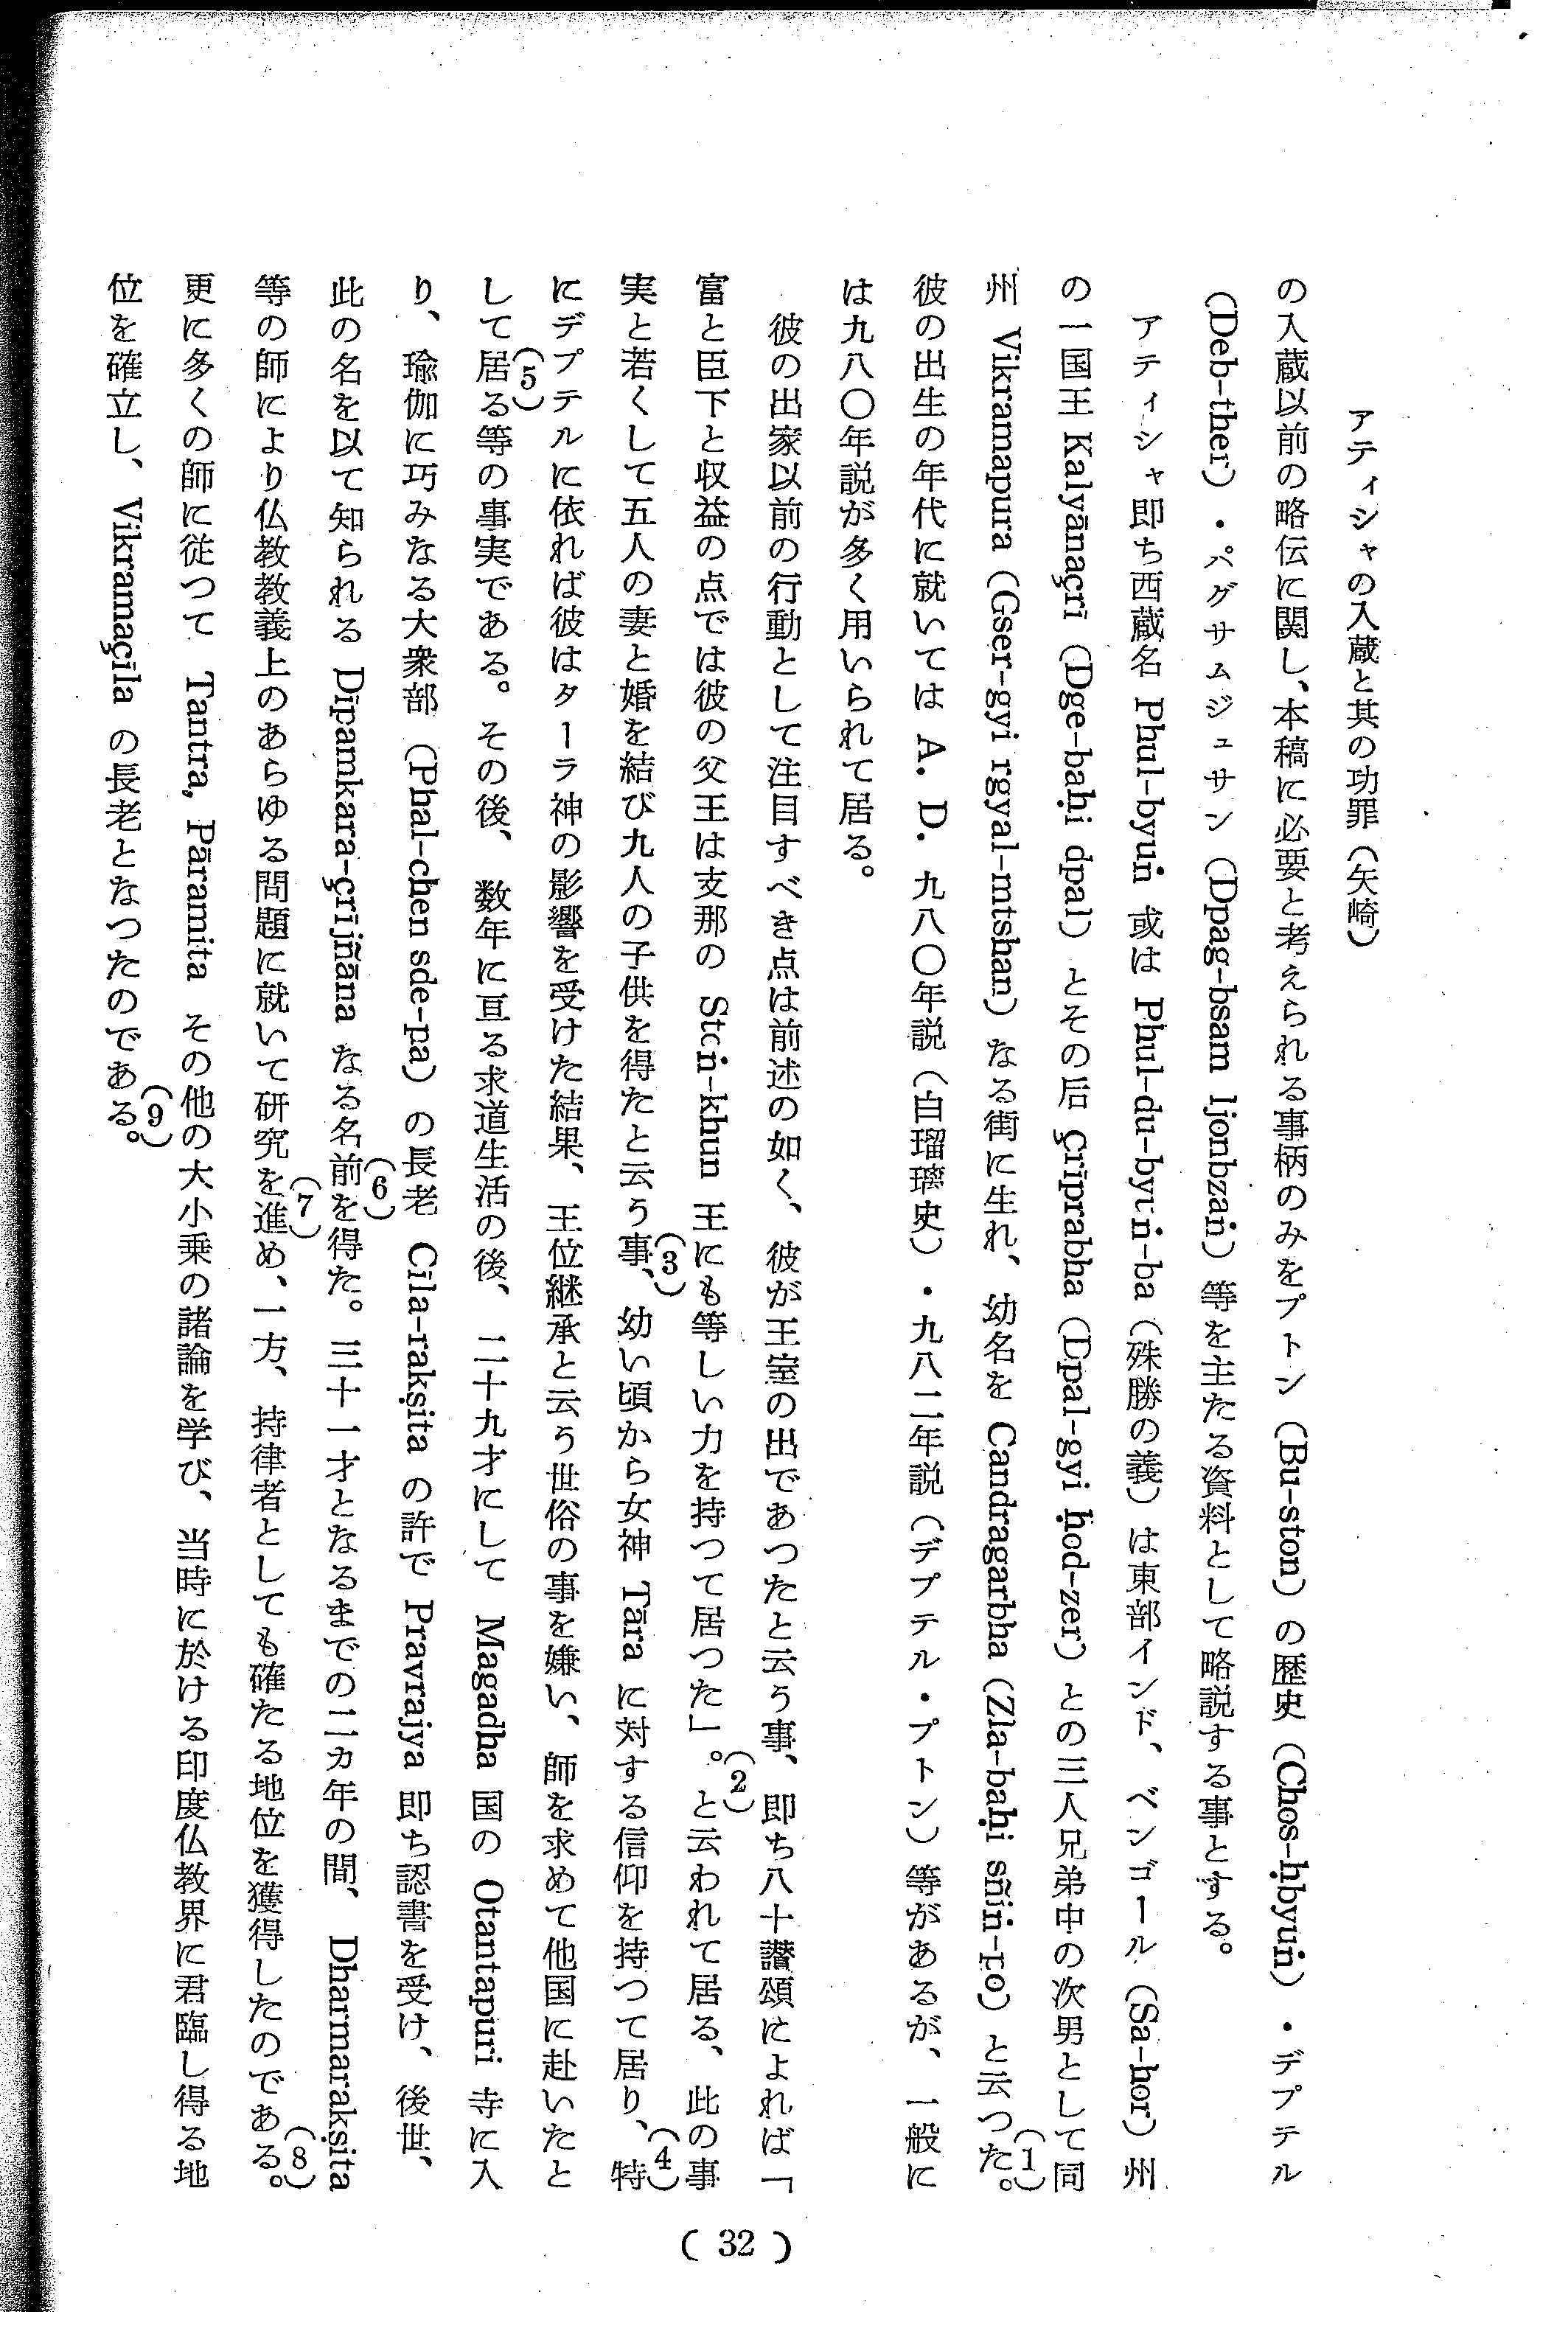 アティシャの入蔵と其の功罪（矢崎）
の入蔵以前の略伝に関し、本稿に必要と考えられる事柄のみをプトン（Bu-ston）の歴史（Chos-ḥbyuṅ）・デプテル
（Deb-ther）・パグサムジュサン（Dpag-bsam ljonbzaṅ）等を主たる資料として略説する事とする。
アティシャ即ち西蔵名 Phul-byuṅ 或は Phul-du-byuṅ-ba（殊勝の義）は東部インド、ベンゴール（Sa-hor）州
の一国王 Kalyānaçrī（Dge-baḥi dpal）とその后 Çrīprabha（Dpal-gyi ḥod-zer）との三人兄弟中の次男として同
州 Vikramapura（Gser-gyi rgyal-mtshan）なる街に生れ、幼名を Candragarbha（Zla-baḥi sñiṅ-po）と云つた。(1)
彼の出生の年代に就いては A. D. 九八〇年説（白瑠璃史）・九八二年説（デプテル・プトン）等があるが、一般に
は九八〇年説が多く用いられて居る。
彼の出家以前の行動として注目すべき点は前述の如く、彼が王室の出であつたと云う事、即ち八十讃頌によれば「
富と臣下と収益の点では彼の父王は支那の Stoṅ-khun 王にも等しい力を持つて居つた」。(2)と云われて居る、此の事
実と若くして五人の妻と婚を結び九人の子供を得たと云う事、(3)幼い頃から女神 Tāra に対する信仰を持つて居り、(4)特
にデプテルに依れば彼はターラ神の影響を受けた結果、王位継承と云う世俗の事を嫌い、師を求めて他国に赴いたと
して居る(5)等の事実である。その後、数年に亘る求道生活の後、二十九才にして Magadha 国の Otantapuri 寺に入
り、瑜伽に巧みなる大衆部（Phal-chen sde-pa）の長老 Cīla-rakṣita の許で Pravrajya 即ち認書を受け、後世、
此の名を以て知られる Dīpamkara-çrījñāna なる名前(6)を得た。三十一才となるまでの二カ年の間、Dharmarakṣita
等の師により仏教教義上のあらゆる問題に就いて研究を進め、(7)一方、持律者としても確たる地位を獲得したのである。(8)
更に多くの師に従つて Tantra, Pāramita その他の大小乗の諸論を学び、当時に於ける印度仏教界に君臨し得る地
位を確立し、Vikramaçīla の長老となつたのである。(9)
( 32 )